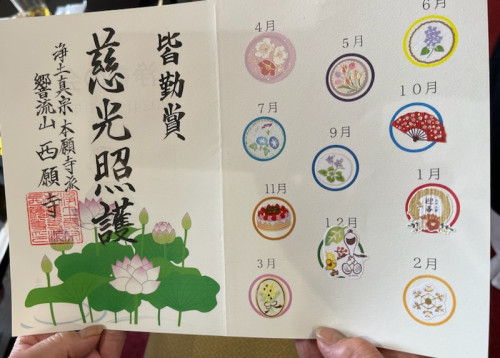 皆勤賞
慈光照護
浄土真宗本願寺派
響流山 西願寺
4月
5月
6月
7月
9月
10月
11月
12月
1月
3月
2月